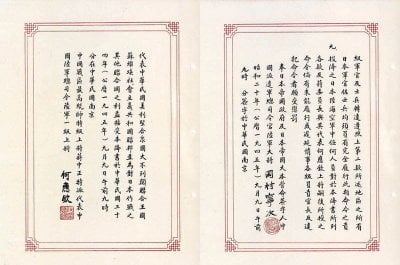 級軍官及士兵轉達遵照上第二款所述地區之所有
日本軍官佐士兵均須負有完全履行此類命令之責
九、投降之日本陸海空軍中任何人員對於本降書所列
各款及蔣委員長與其代表何應欽上將嗣後所授之
命令倘有未能履行或遲延情事各級負責官長及違
犯命令者願受懲罰
奉日本帝國政府及日本帝國大本營命簽字人中
國派遣軍總司令官陸軍大將 岡村寧次
昭和二十年(公曆一九四五年)九月九日午前
九時 分簽字於中華民國南京
代表中華民國美利堅合眾國大不列顛聯合王國
蘇維埃社會主義共和國聯邦並為對日本作戰之
其他聯合國之利益接受本降書於中華民國三十
四年(公曆一九四五年)九月九日午前九時
分在中華民國南京
中國戰區最高統帥特級上將蔣中正特派代表中
國陸軍總司令陸軍一級上將
何應欽